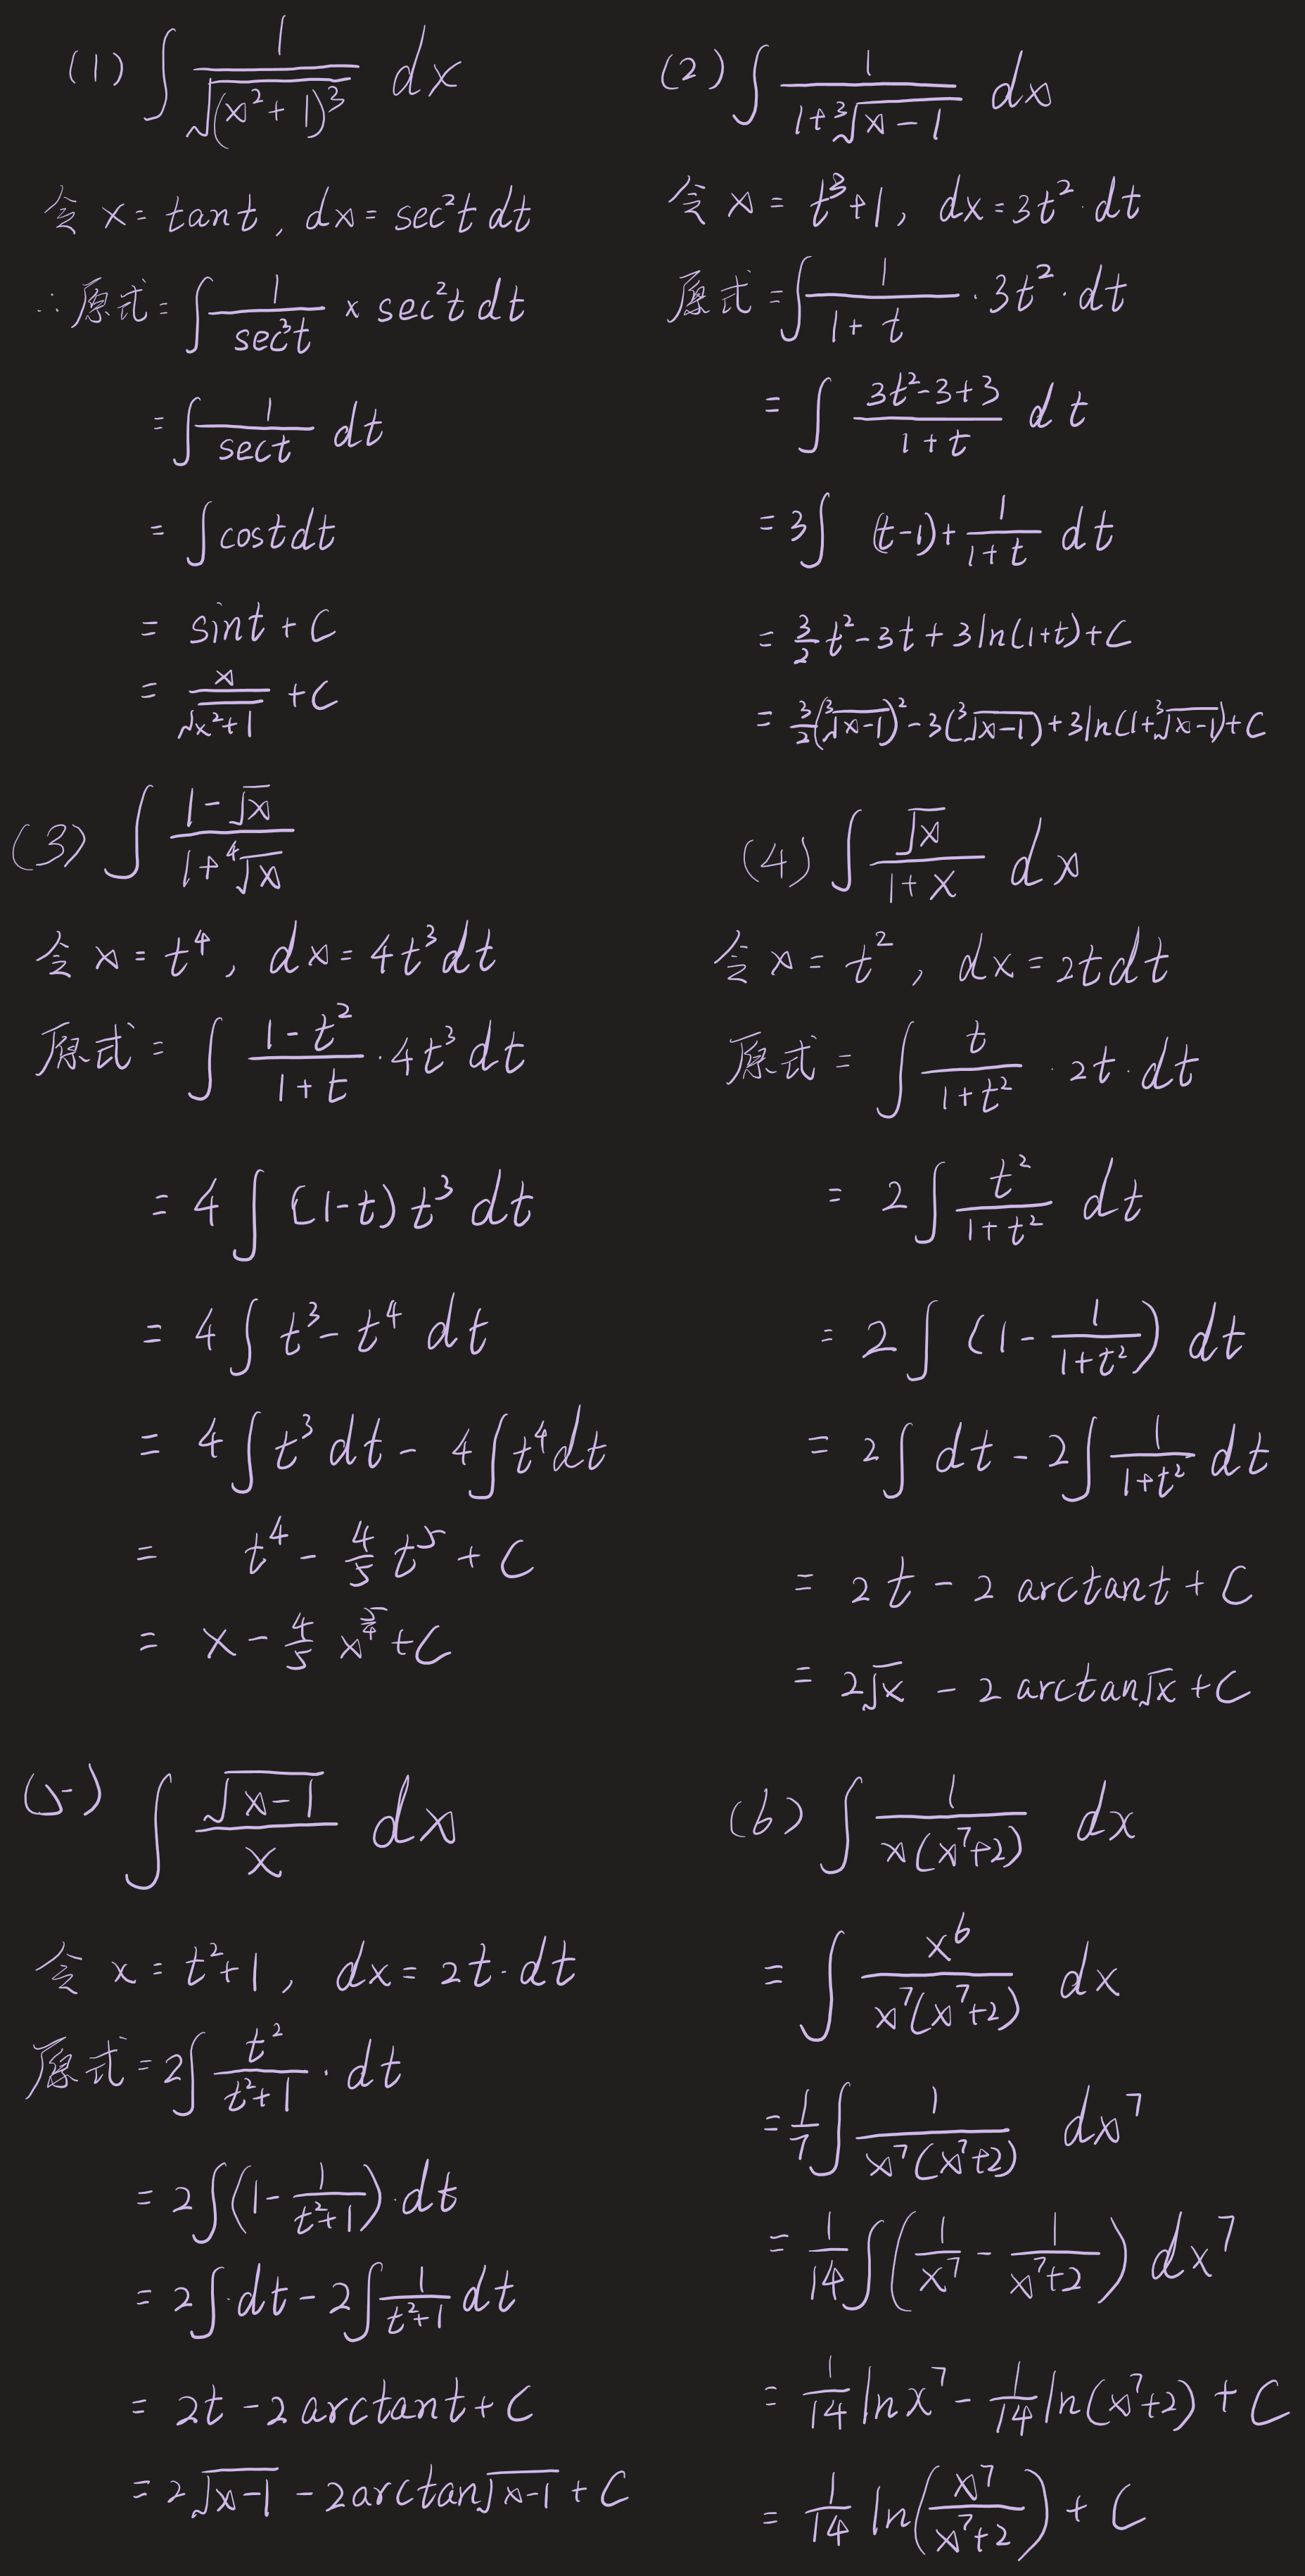 (1) ∫ 1/√((x²+1)³) dx
令 x = tan t , dx = sec²t dt
∴ 原式 = ∫ 1/sec³t × sec²t dt
= ∫ 1/sect dt
= ∫ cost dt
= sint + C
= x/√(x²+1) + C
(2) ∫ 1/(1+³√(x-1)) dx
令 x = t³+1, dx = 3t²·dt
原式 = ∫ 1/(1+t) · 3t² · dt
= ∫ (3t²-3+3)/(1+t) dt
= 3∫ (t-1)+1/(1+t) dt
= 3/2 t² - 3t + 3ln(1+t) + C
= 3/2(³√(x-1))² - 3(³√(x-1)) + 3ln(1+³√(x-1)) + C
(3) ∫ (1-√x)/(1+⁴√x)
令 x = t⁴, dx = 4t³dt
原式 = ∫ (1-t²)/(1+t) · 4t³ dt
= 4∫ (1-t) t³ dt
= 4∫ t³ - t⁴ dt
= 4∫ t³ dt - 4∫ t⁴ dt
= t⁴ - 4/5 t⁵ + C
= x - 4/5 x^(5/4) + C
(4) ∫ √x/(1+x) dx
令 x = t², dx = 2tdt
原式 = ∫ t/(1+t²) · 2t · dt
= 2∫ t²/(1+t²) dt
= 2∫ (1 - 1/(1+t²)) dt
= 2∫ dt - 2∫ 1/(1+t²) dt
= 2t - 2 arctan t + C
= 2√x - 2 arctan√x + C
(5) ∫ √(x-1)/x dx
令 x = t²+1, dx = 2t·dt
原式 = 2∫ t²/(t²+1) · dt
= 2∫(1 - 1/(t²+1))·dt
= 2∫·dt - 2∫ 1/(t²+1) dt
= 2t - 2 arctan t + C
= 2√(x-1) - 2arctan√(x-1) + C
(6) ∫ 1/(x(x⁷+2)) dx
= ∫ x⁶/(x⁷(x⁷+2)) dx
= 1/7 ∫ 1/(x⁷(x⁷+2)) dx⁷
= 1/14 ∫(1/x⁷ - 1/(x⁷+2)) dx⁷
= 1/14 ln x⁷ - 1/14 ln(x⁷+2) + C
= 1/14 ln(x⁷/(x⁷+2)) + C